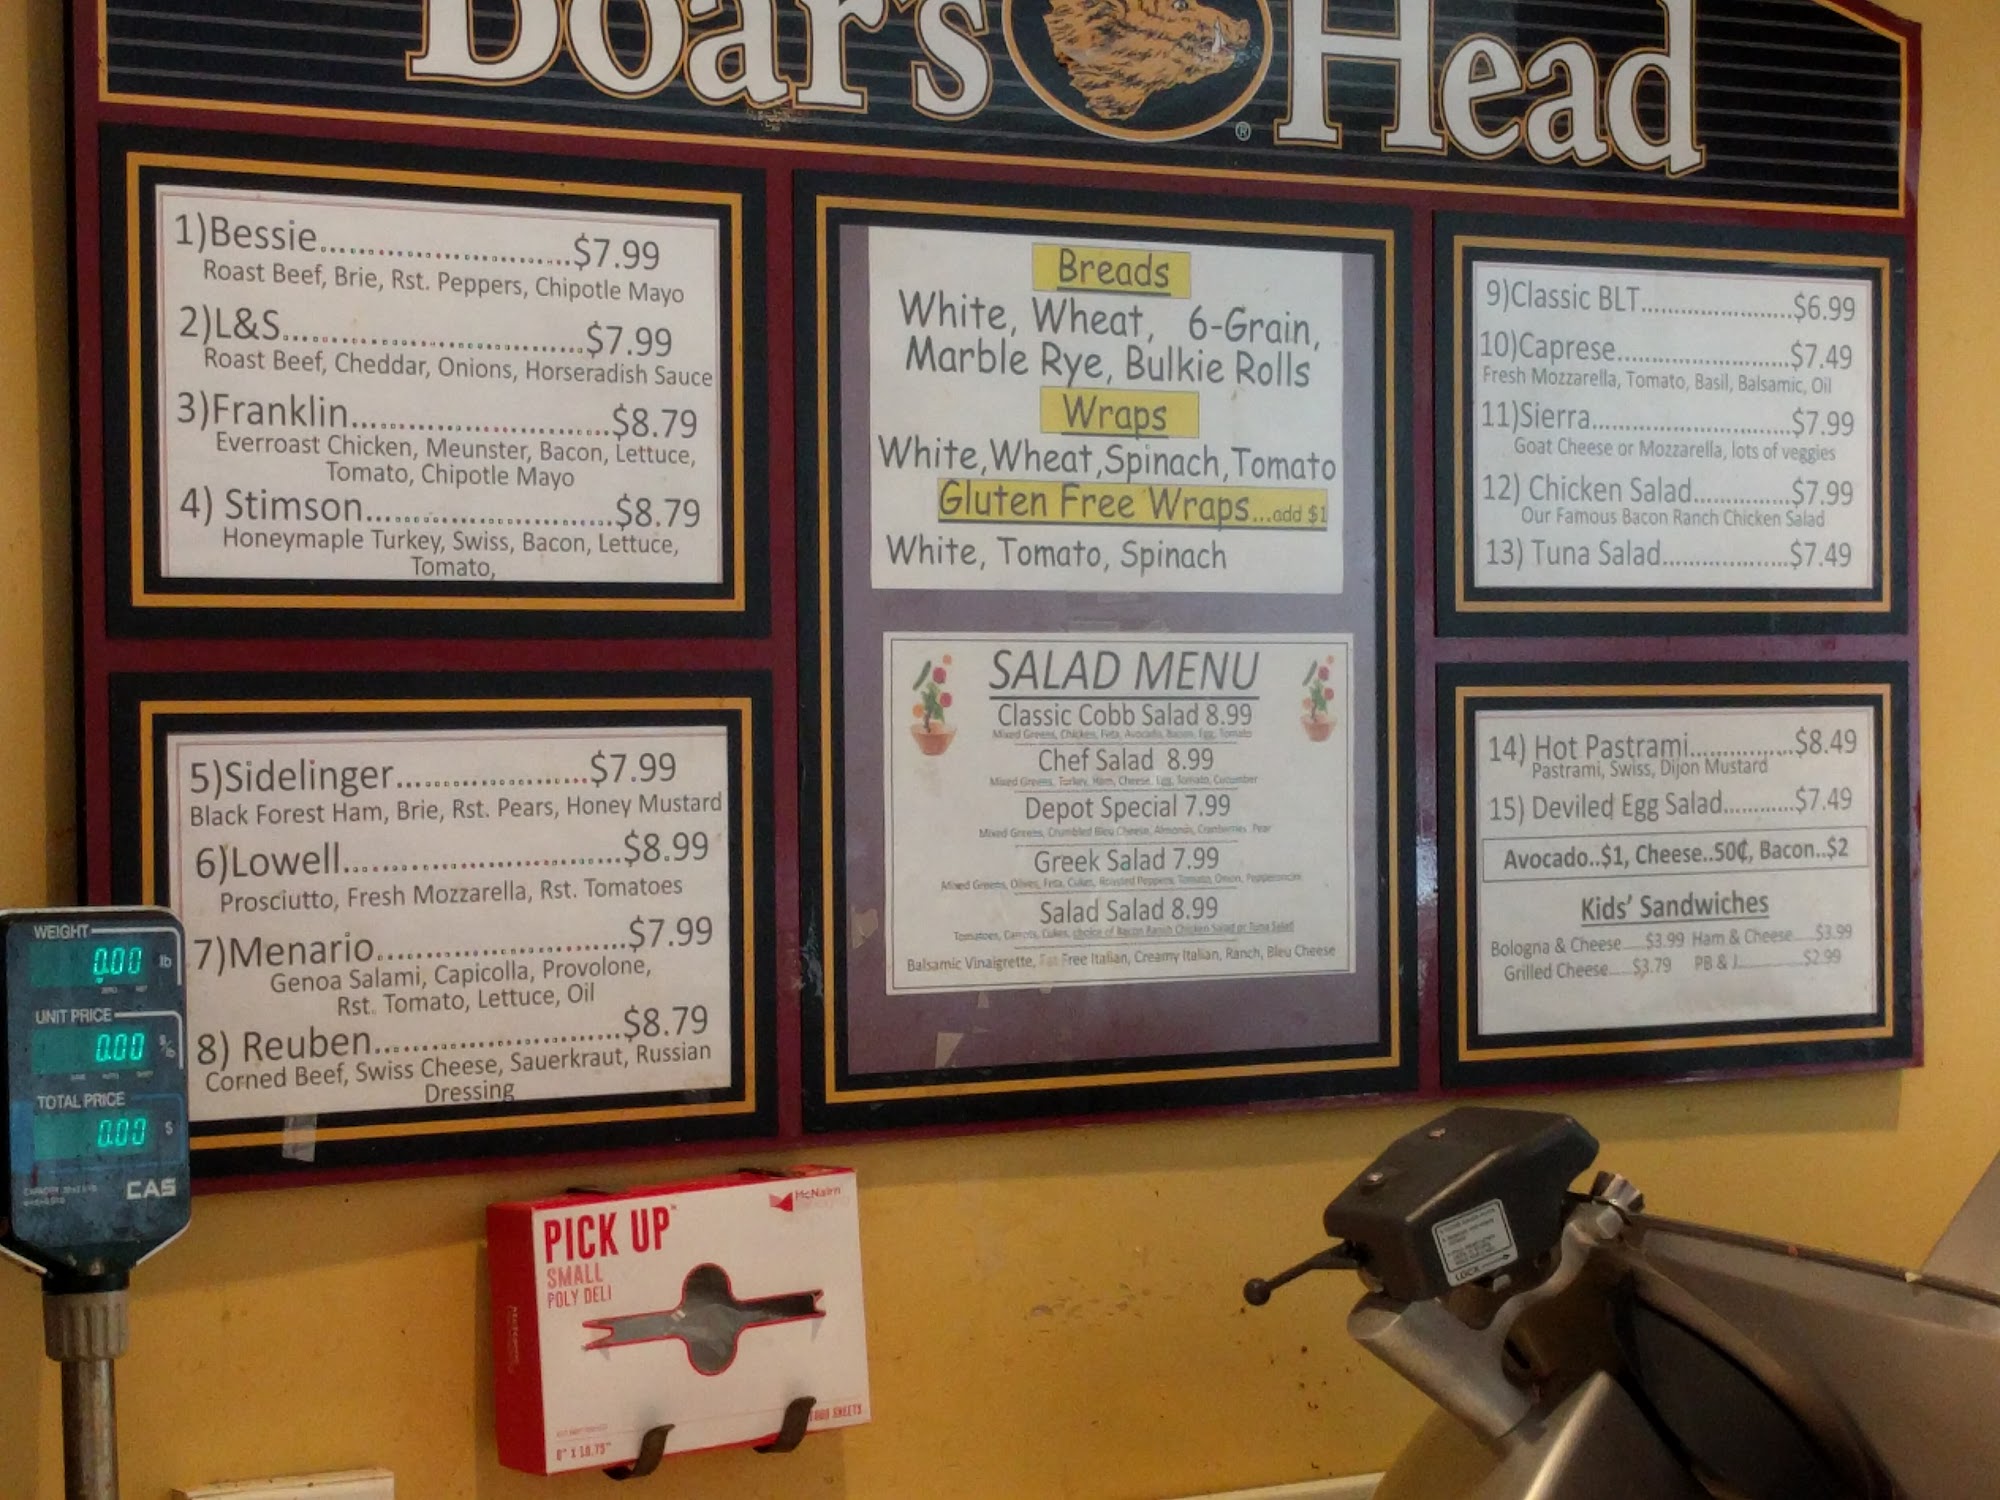 Boar's Head
®
1)Bessie..............................$7.99
Roast Beef, Brie, Rst. Peppers, Chipotle Mayo
2)L&S....................................$7.99
Roast Beef, Cheddar, Onions, Horseradish Sauce
3)Franklin...............................$8.79
Everroast Chicken, Meunster, Bacon, Lettuce,
Tomato, Chipotle Mayo
4) Stimson..............................$8.79
Honeymaple Turkey, Swiss, Bacon, Lettuce,
Tomato,
5)Sidelinger.......................$7.99
Black Forest Ham, Brie, Rst. Pears, Honey Mustard
6)Lowell.................................$8.99
Prosciutto, Fresh Mozzarella, Rst. Tomatoes
7)Menario..............................$7.99
Genoa Salami, Capicolla, Provolone,
Rst. Tomato, Lettuce, Oil
8) Reuben..............................$8.79
Corned Beef, Swiss Cheese, Sauerkraut, Russian
Dressing
Breads
White, Wheat, 6-Grain,
Marble Rye, Bulkie Rolls
Wraps
White,Wheat,Spinach,Tomato
Gluten Free Wraps...add $1
White, Tomato, Spinach
SALAD MENU
Classic Cobb Salad 8.99
Mixed Greens, Chicken, Feta, Avocado, Bacon, Egg, Tomato
Chef Salad 8.99
Mixed Greens, Turkey, Ham, Cheese, Egg, Tomato, Cucumber
Depot Special 7.99
Mixed Greens, Crumbled Bleu Cheese, Almonds, Cranberries Pear
Greek Salad 7.99
Mixed Greens, Olives, Feta, Cukes, Roasted Peppers, Tomato, Onion, Pepperoncini
Salad Salad 8.99
Tomatoes, Carrots, Cukes, choice of Bacon Ranch Chicken Salad or Tuna Salad
Balsamic Vinaigrette, Fat Free Italian, Creamy Italian, Ranch, Bleu Cheese
9)Classic BLT......................$6.99
10)Caprese.........................$7.49
Fresh Mozzarella, Tomato, Basil, Balsamic, Oil
11)Sierra.............................$7.99
Goat Cheese or Mozzarella, lots of veggies
12) Chicken Salad..............$7.99
Our Famous Bacon Ranch Chicken Salad
13) Tuna Salad...................$7.49
14) Hot Pastrami...............$8.49
Pastrami, Swiss, Dijon Mustard
15) Deviled Egg Salad...........$7.49
Avocado..$1, Cheese..50¢, Bacon..$2
Kids' Sandwiches
Bologna & Cheese.....$3.99 Ham & Cheese....$3.99
Grilled Cheese.....$3.79 PB & J...........$2.99
WEIGHT
0.00 lb
UNIT PRICE
0.00 $/lb
TOTAL PRICE
0.00 $
CAS
McNairn
PICK UP™
SMALL
POLY DELI
SHEETS
8" X 10.75"
LOCK